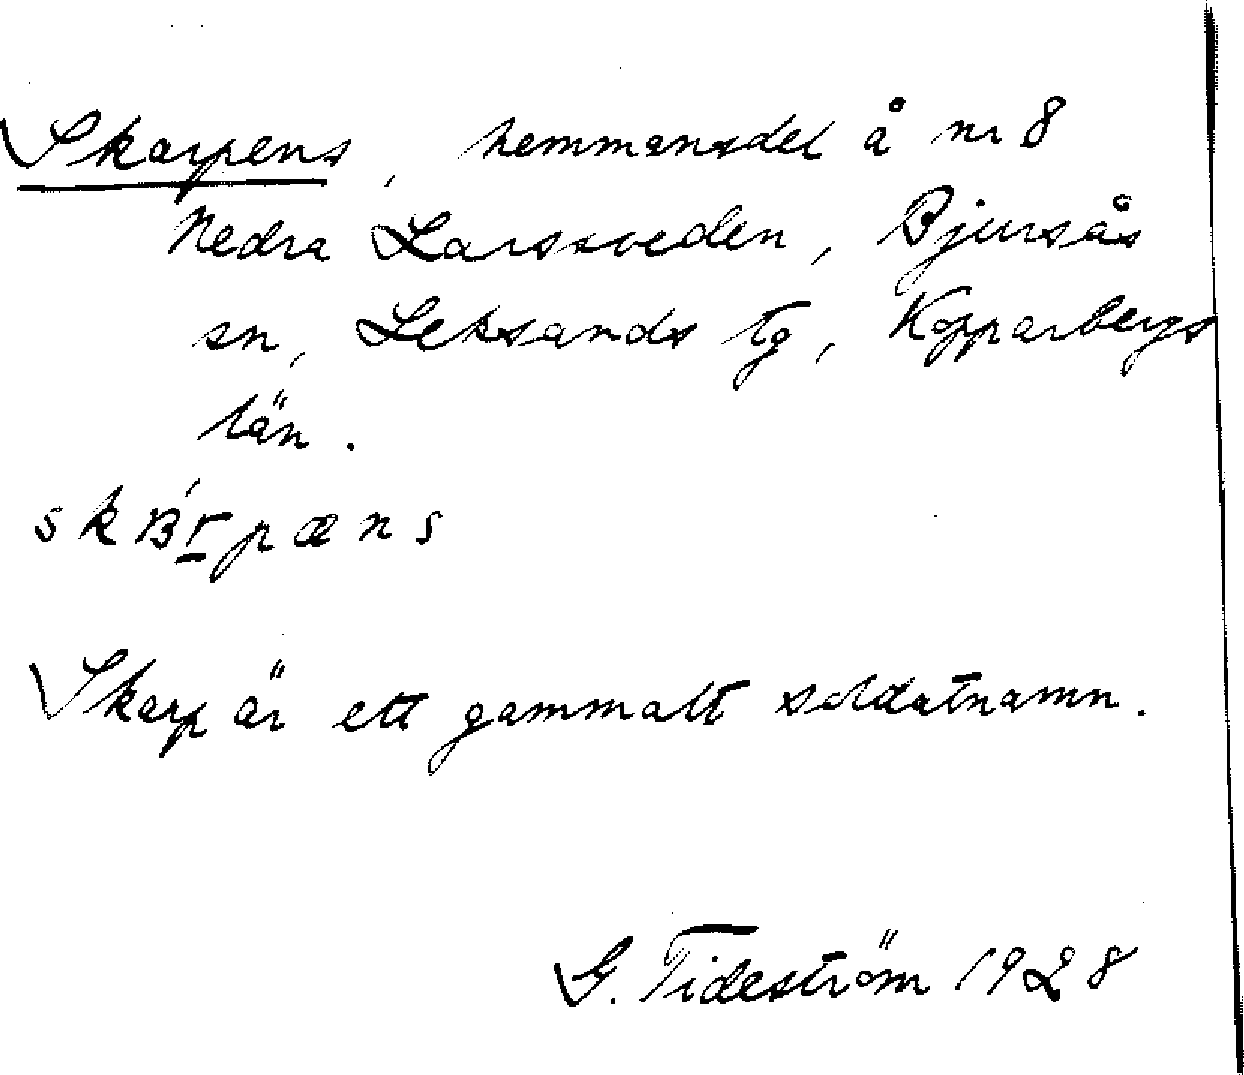 Skarpens, hemmansdel å nr 8
Nedra Larssveden, Bjursås
sn, Leksands tg, Kopparbergs
län.
Skarp är ett gammalt soldatnamn.
G. Tideström 1928